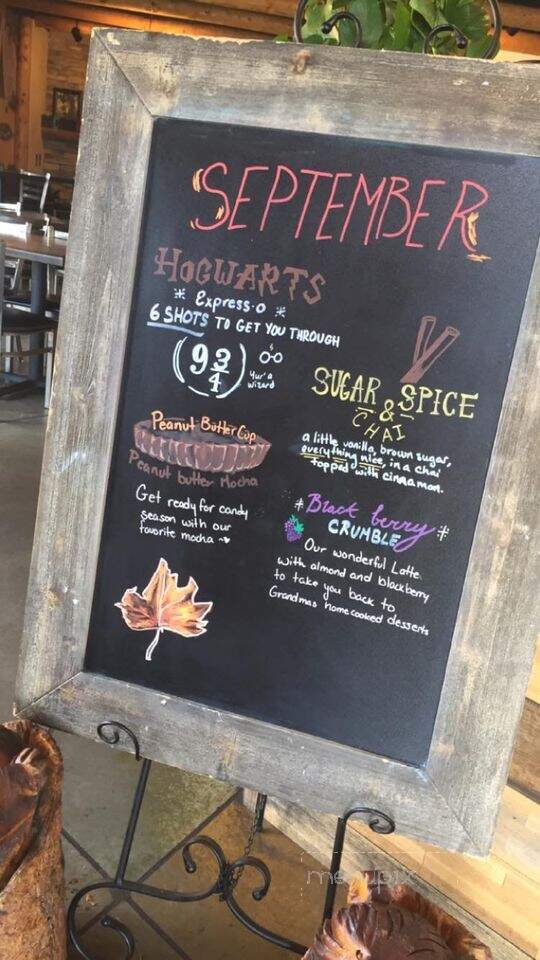 SEPTEMBER
HOGWARTS
* Express-o *
6 SHOTS TO GET YOU THROUGH
(9 3/4)
4ur'a
wizard
Peanut Butter Cup
Peanut butter Mocha
Get ready for candy
season with our
favorite mocha
SUGAR & SPICE
CHAI
a little vanilla, brown sugar,
everything nice, in a chai
topped with cinnamon.
Black berry
CRUMBLE
Our wonderful Latte
with almond and blackberry
to take you back to
Grandmas homecooked desserts
menupix